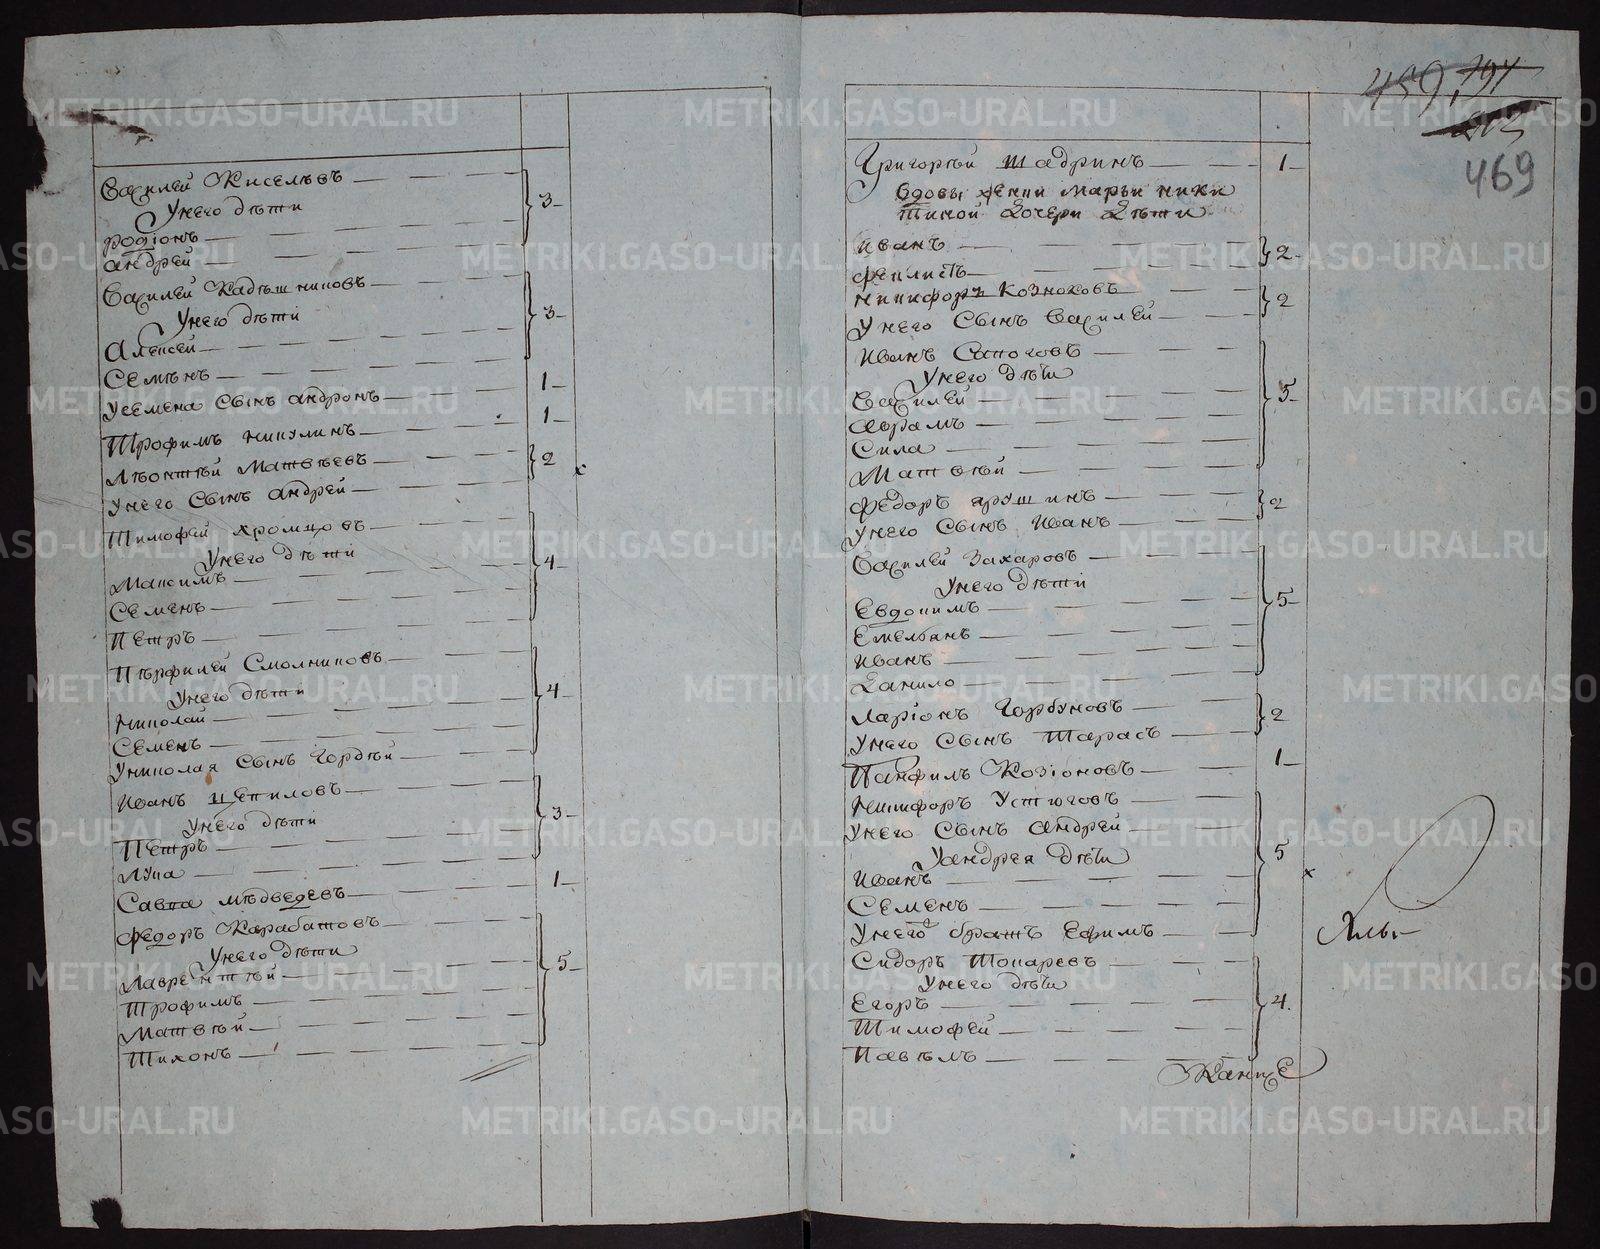 Василей Киселевъ
Унего дѣти 3
родіонъ
андрей
Василей Кадешниковъ
Унего дѣти 3
Алексей
Семѣнъ
Усемена Сынъ андронъ 1
Трофимъ никулинъ 1
Лѣонтѣй Матвѣевъ 2
Унего Сынъ андрей
Тимофей хромцовъ
Унего дѣти 4
Максимъ
Семенъ
Петръ
Пѣрфилей Смолниковъ
Унего дѣти 4
Николай
Семенъ
Униколая Сынъ Гордѣй
Иванъ щепиловъ
Унего дѣти 3
Петръ
Лупа
Савва мѣдведевъ 1
федоръ Карабатовъ
Унего дѣти 5
Лаврентѣй
Трофимъ
Матвѣй
Тихонъ
459,
469
Григорѣй шадринъ 1
Вдовы Марьи ники
тиной дочери дѣти
иванъ 2
феклистъ
никифоръ 2
Унего Сынъ Василей
Иванъ Сапоговъ
Унего дѣти 5
Василей
Аврамъ
Сила
Матвѣй
федоръ ярушинъ 2
Унего Сынъ Иванъ
Василей Захаровъ
Унего дѣти 5
Евдокимъ
Емельянъ
Иванъ
данило
Ларіонъ Горбуновъ 2
Унего Сынъ Тарасъ
Панфилъ Козіоновъ 1
Никифоръ Устюговъ
Унего Сынъ андрей
Уандрея дѣти 5
Иванъ
Семенъ
Унего братъ Ефимъ
Сидоръ Токаревъ
Унего дѣти 4
Егоръ
Тимофей
Павѣлъ
METRIKI.GASO-URAL.RU